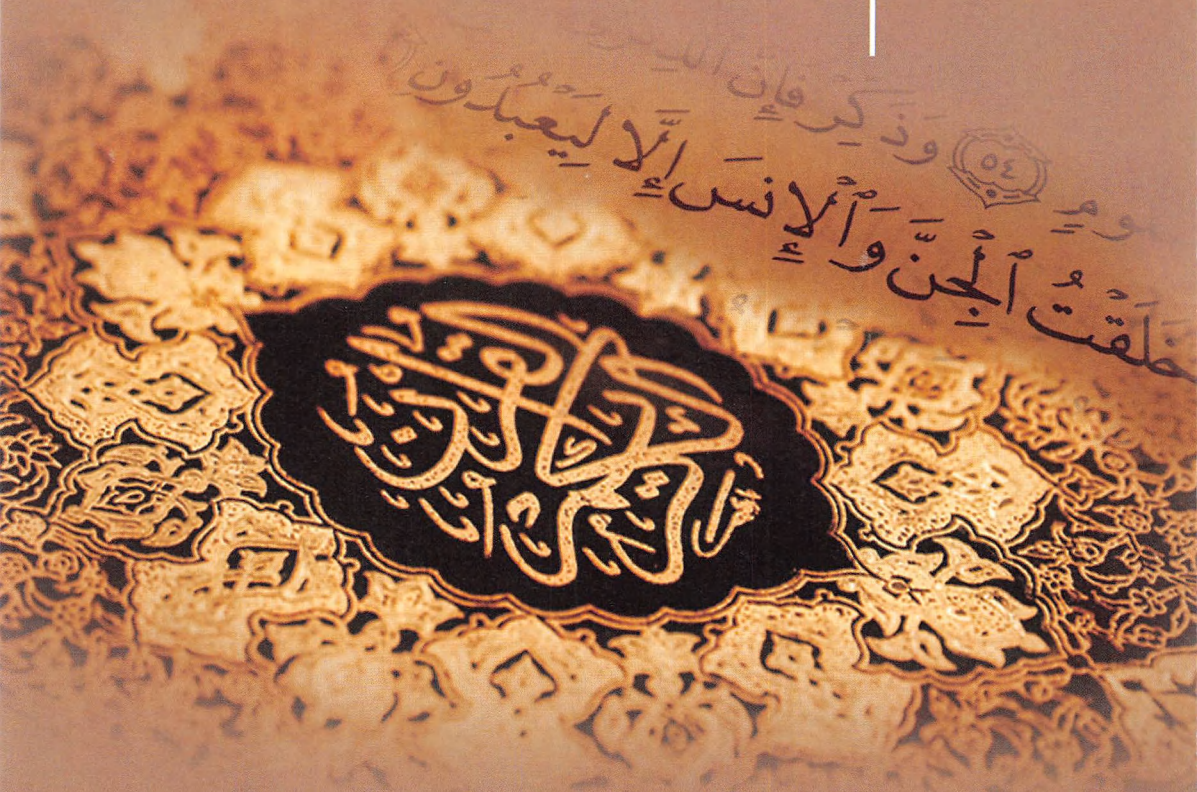 ومٍ ٥٤ وَذَكِّرْ فَإِنَّ
خَلَقْتُ ٱلْجِنَّ وَٱلْإِنسَ إِلَّا لِيَعْبُدُونِ
القرآن الكريم